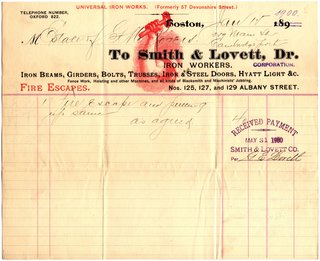 UNIVERSAL IRON WORKS. (Formerly 57 Devonshire Street.)
TELEPHONE NUMBER,
OXFORD 822.
Boston, 189
1900
To Smith & Lovett, Dr.
IRON WORKERS.
CORPORATION.
Iron Beams, Girders, Bolts, Trusses, Iron & Steel Doors, Hyatt Light &c.
Fence Work, Hoisting and other Machines, and all kinds of Blacksmith and Machinists' Jobbing.
FIRE ESCAPES.
Nos. 125, 127, and 129 ALBANY STREET.
1 Fire Escape and putting
up same
as agreed
RECEIVED PAYMENT
MAY 31 1900
SMITH & LOVETT CO.
Per